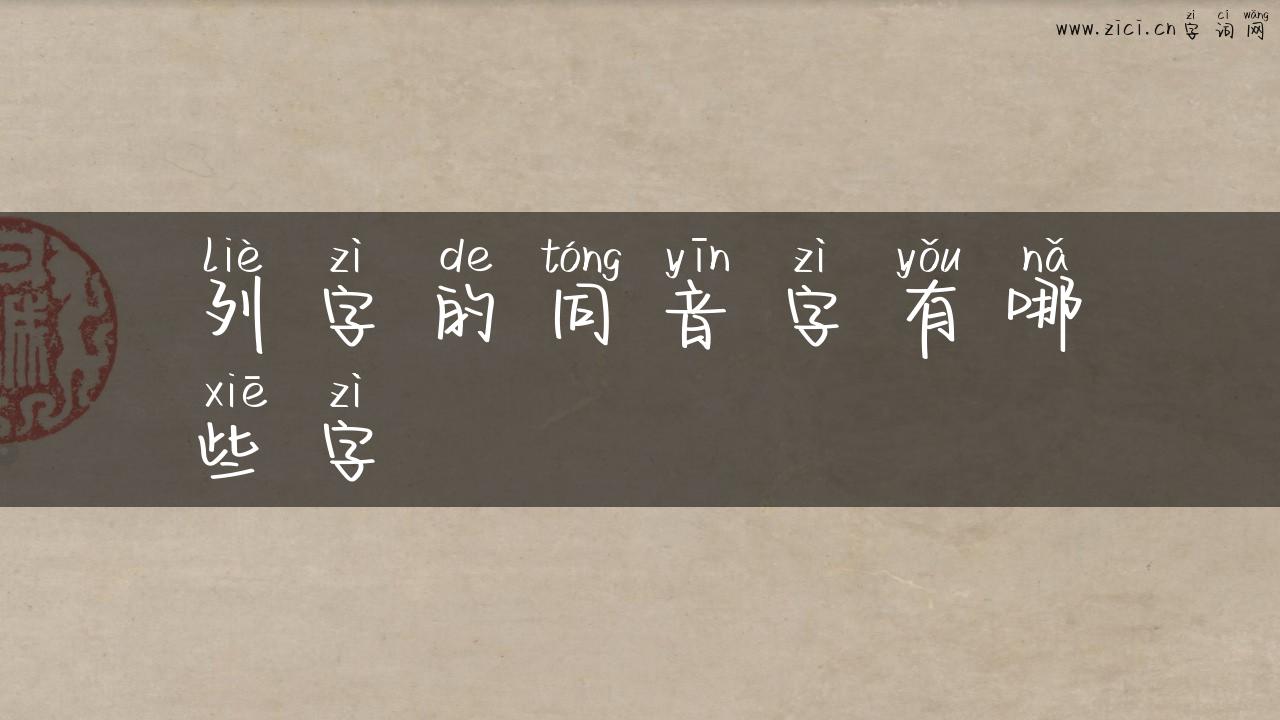 zì cí wǎng
www.zici.cn 字词网
liè zì de tóng yīn zì yǒu nǎ
列字的同音字有哪
xiē zì
些字